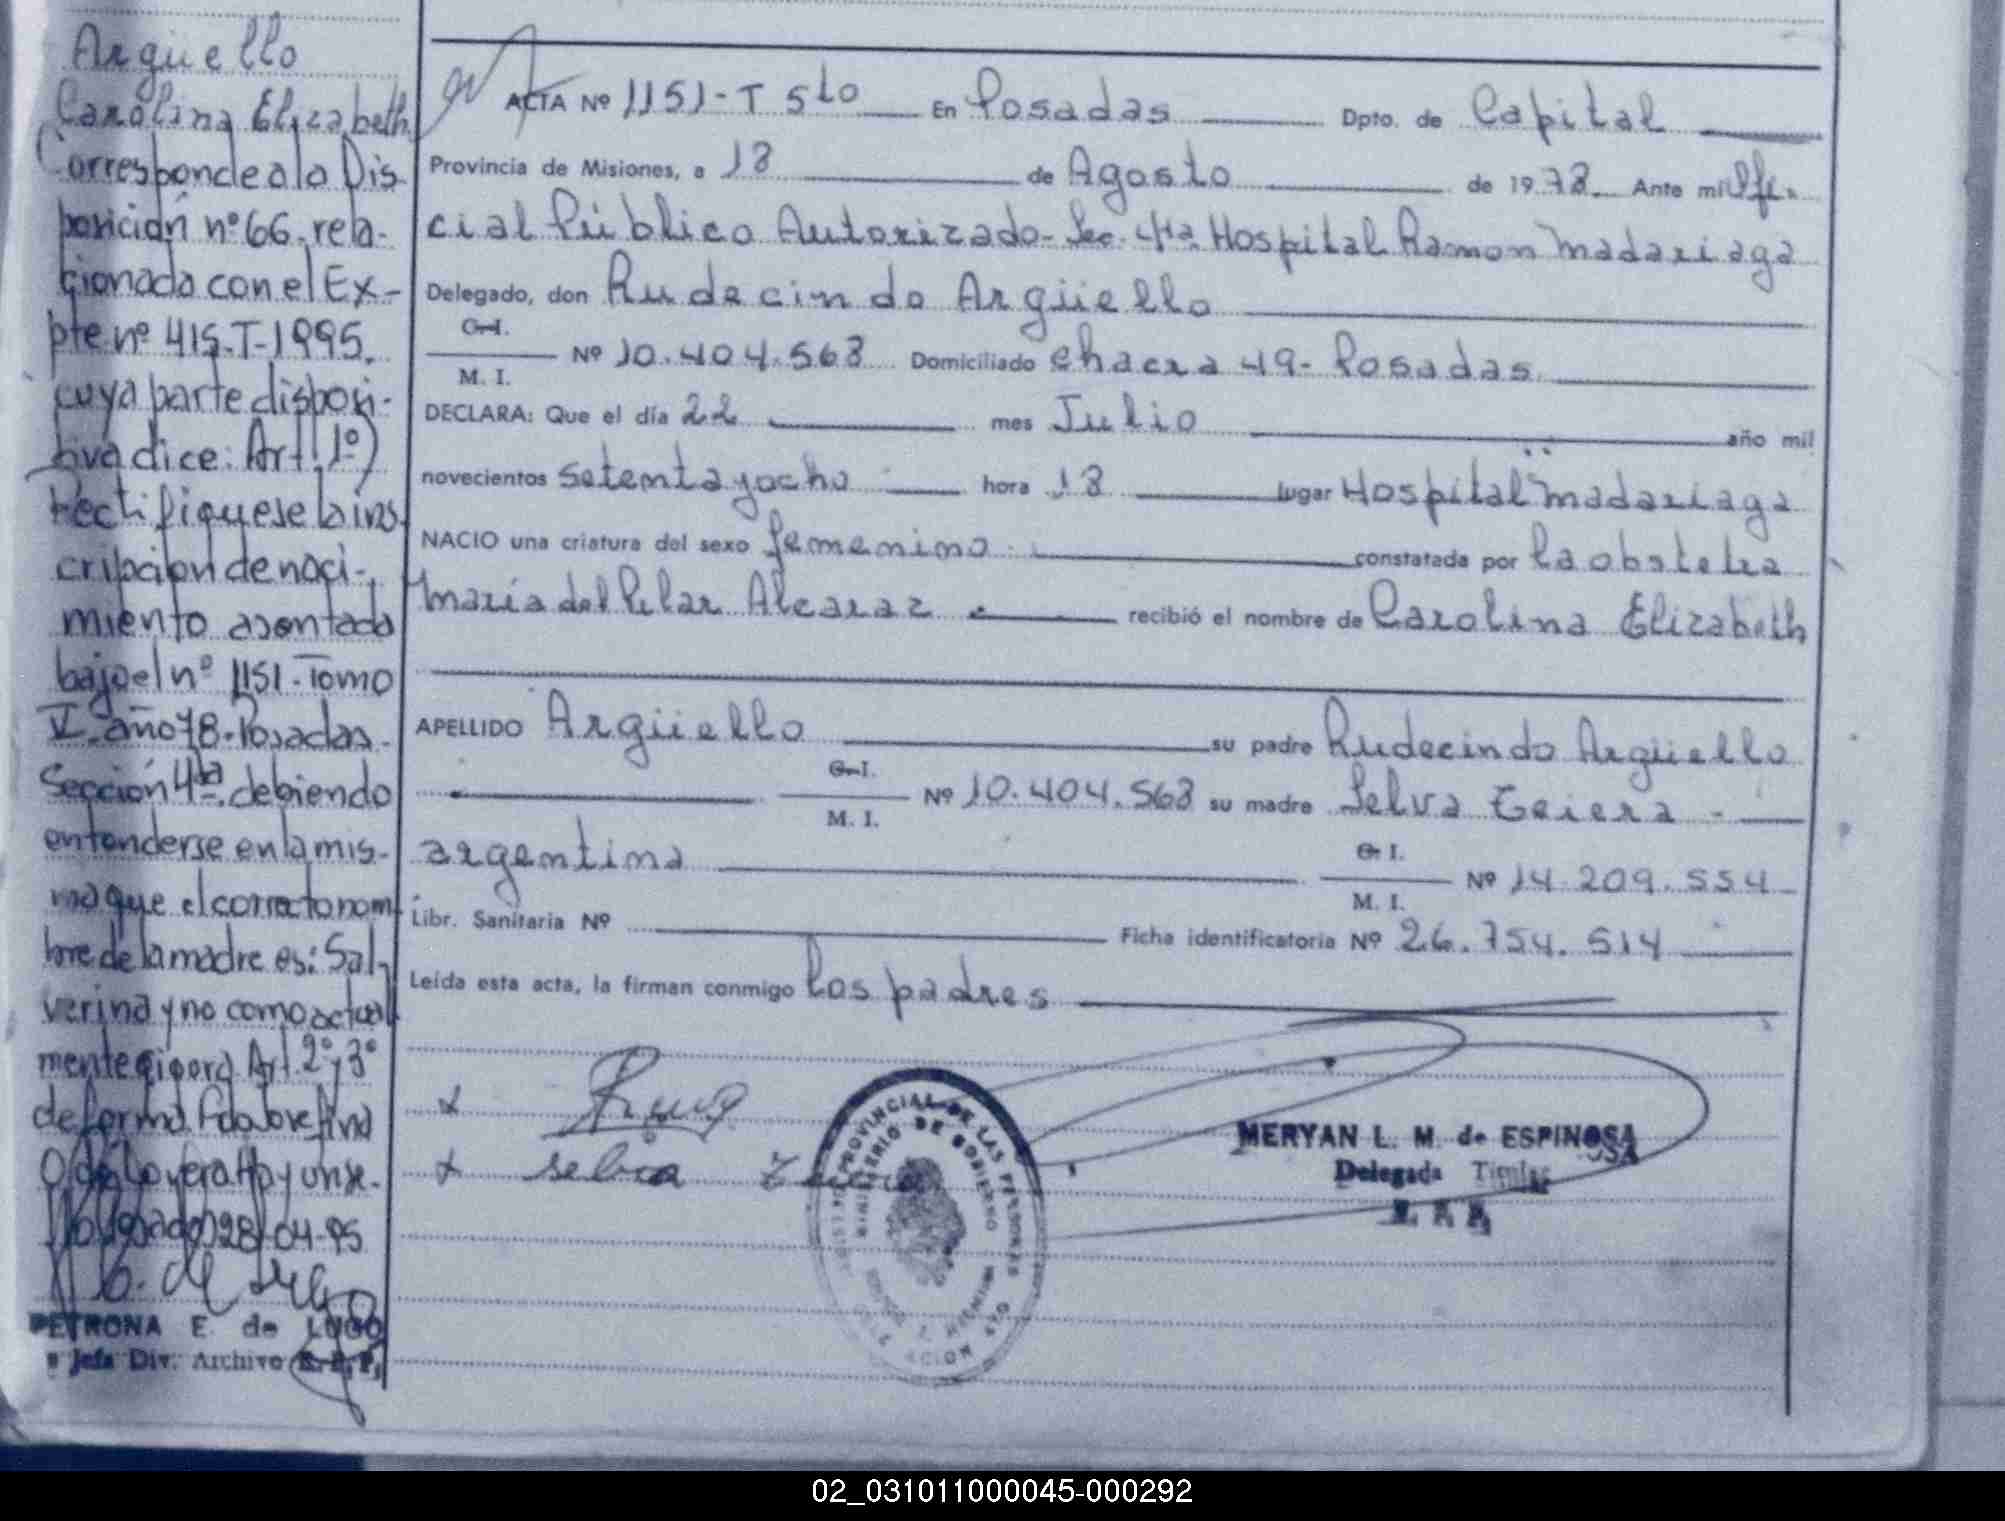 Argüello
Carolina Elizabeth
Corresponde a la Dis-
posición nº 66, rela-
cionada con el Ex-
pte nº 415-T-1995,
cuya parte disposi-
tiva dice: Art. 1º)
Rectifíquese la ins-
cripción de naci-
miento asentada
bajo el nº 1151-Tomo
V-año 78-Posadas-
Sección 4ta, debiendo
entenderse en la mis-
ma que el correcto nom-
bre de la madre es: Sal-
verina y no como actual
mente figura Art. 2º y 3º
de forma
Posadas 28-04-95
PETRONA E. de LUGO
Jefa Div. Archivo R. P. P.
ACTA Nº 1151-T 5to En Posadas Dpto. de Capital
Provincia de Misiones, a 18 de Agosto de 1978. Ante mi Ofi-
cial Público Autorizado- Sec. 4ta. Hospital Ramon Madariaga
Delegado, don Rudecindo Argüello
C. I.
Nº 10.404.568 Domiciliado Chacra 49- Posadas
M. I.
DECLARA: Que el día 22 mes Julio año mil
novecientos setenta y ocho hora 18 lugar Hospital Madariaga
NACIO una criatura del sexo femenino constatada por la obstetra
María del Pilar Alcaraz recibió el nombre de Carolina Elizabeth
APELLIDO Argüello su padre Rudecindo Argüello
C. I.
Nº 10.404.568 su madre Selva
M. I.
argentina
C. I.
Nº 14.209.554
M. I.
Libr. Sanitaria Nº Ficha identificatoria Nº 26.754.514
Leída esta acta, la firman conmigo los padres
selva
PROVINCIAL DE LAS PERSONAS
MINISTERIO DE GOBIERNO
MERYAN L. M. de ESPINOSA
Delegada Titular
R. P. P.
02_031011000045-000292